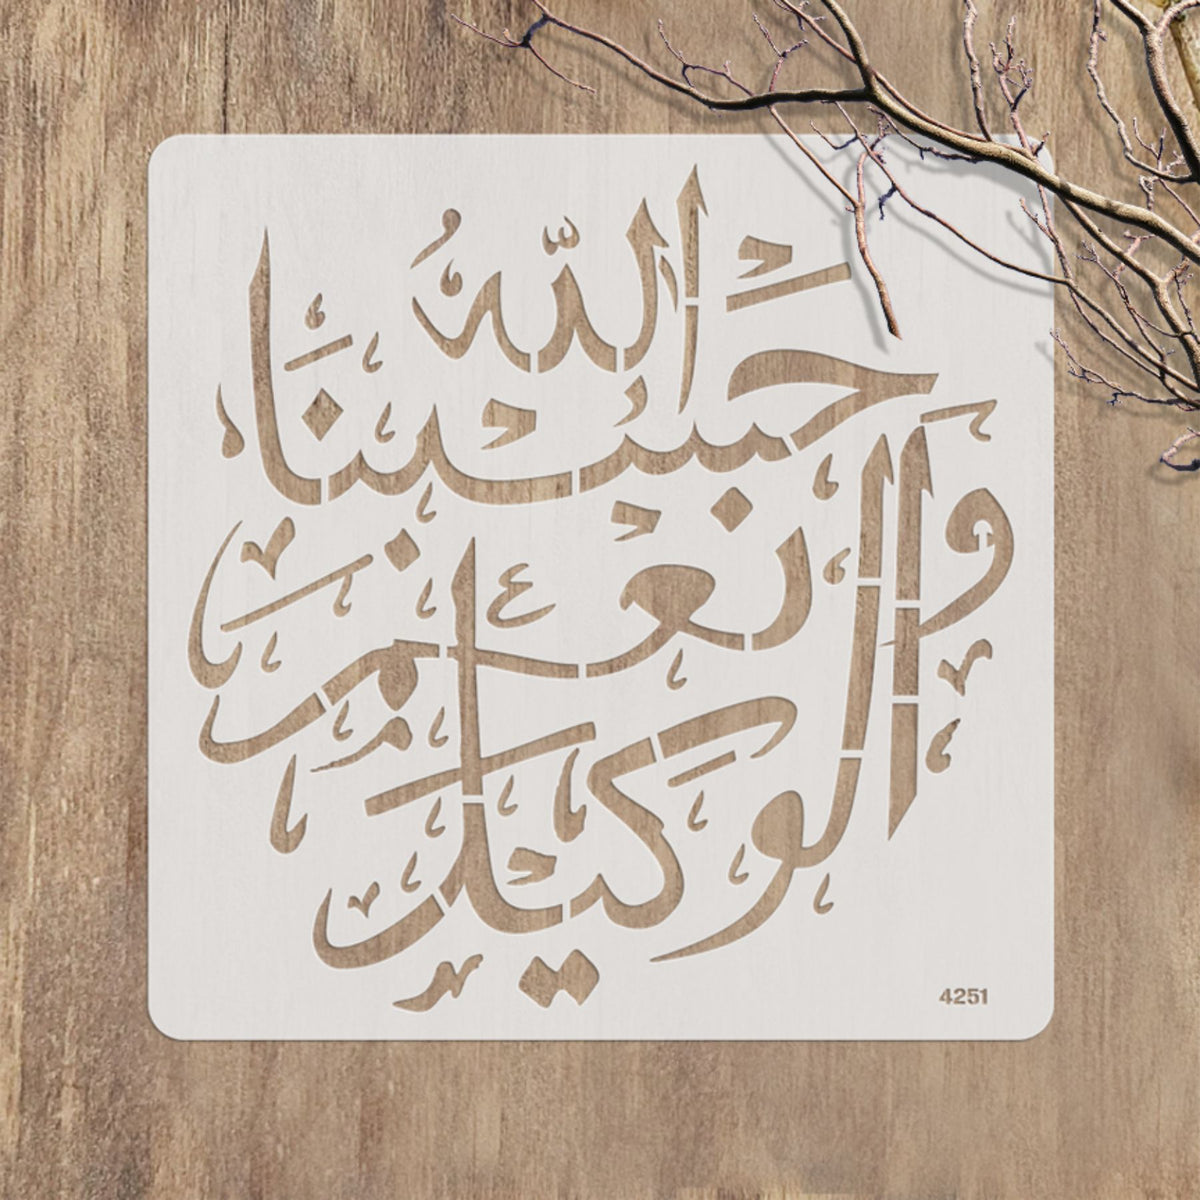 حسبنا الله
ونعم
الوكيل
4251